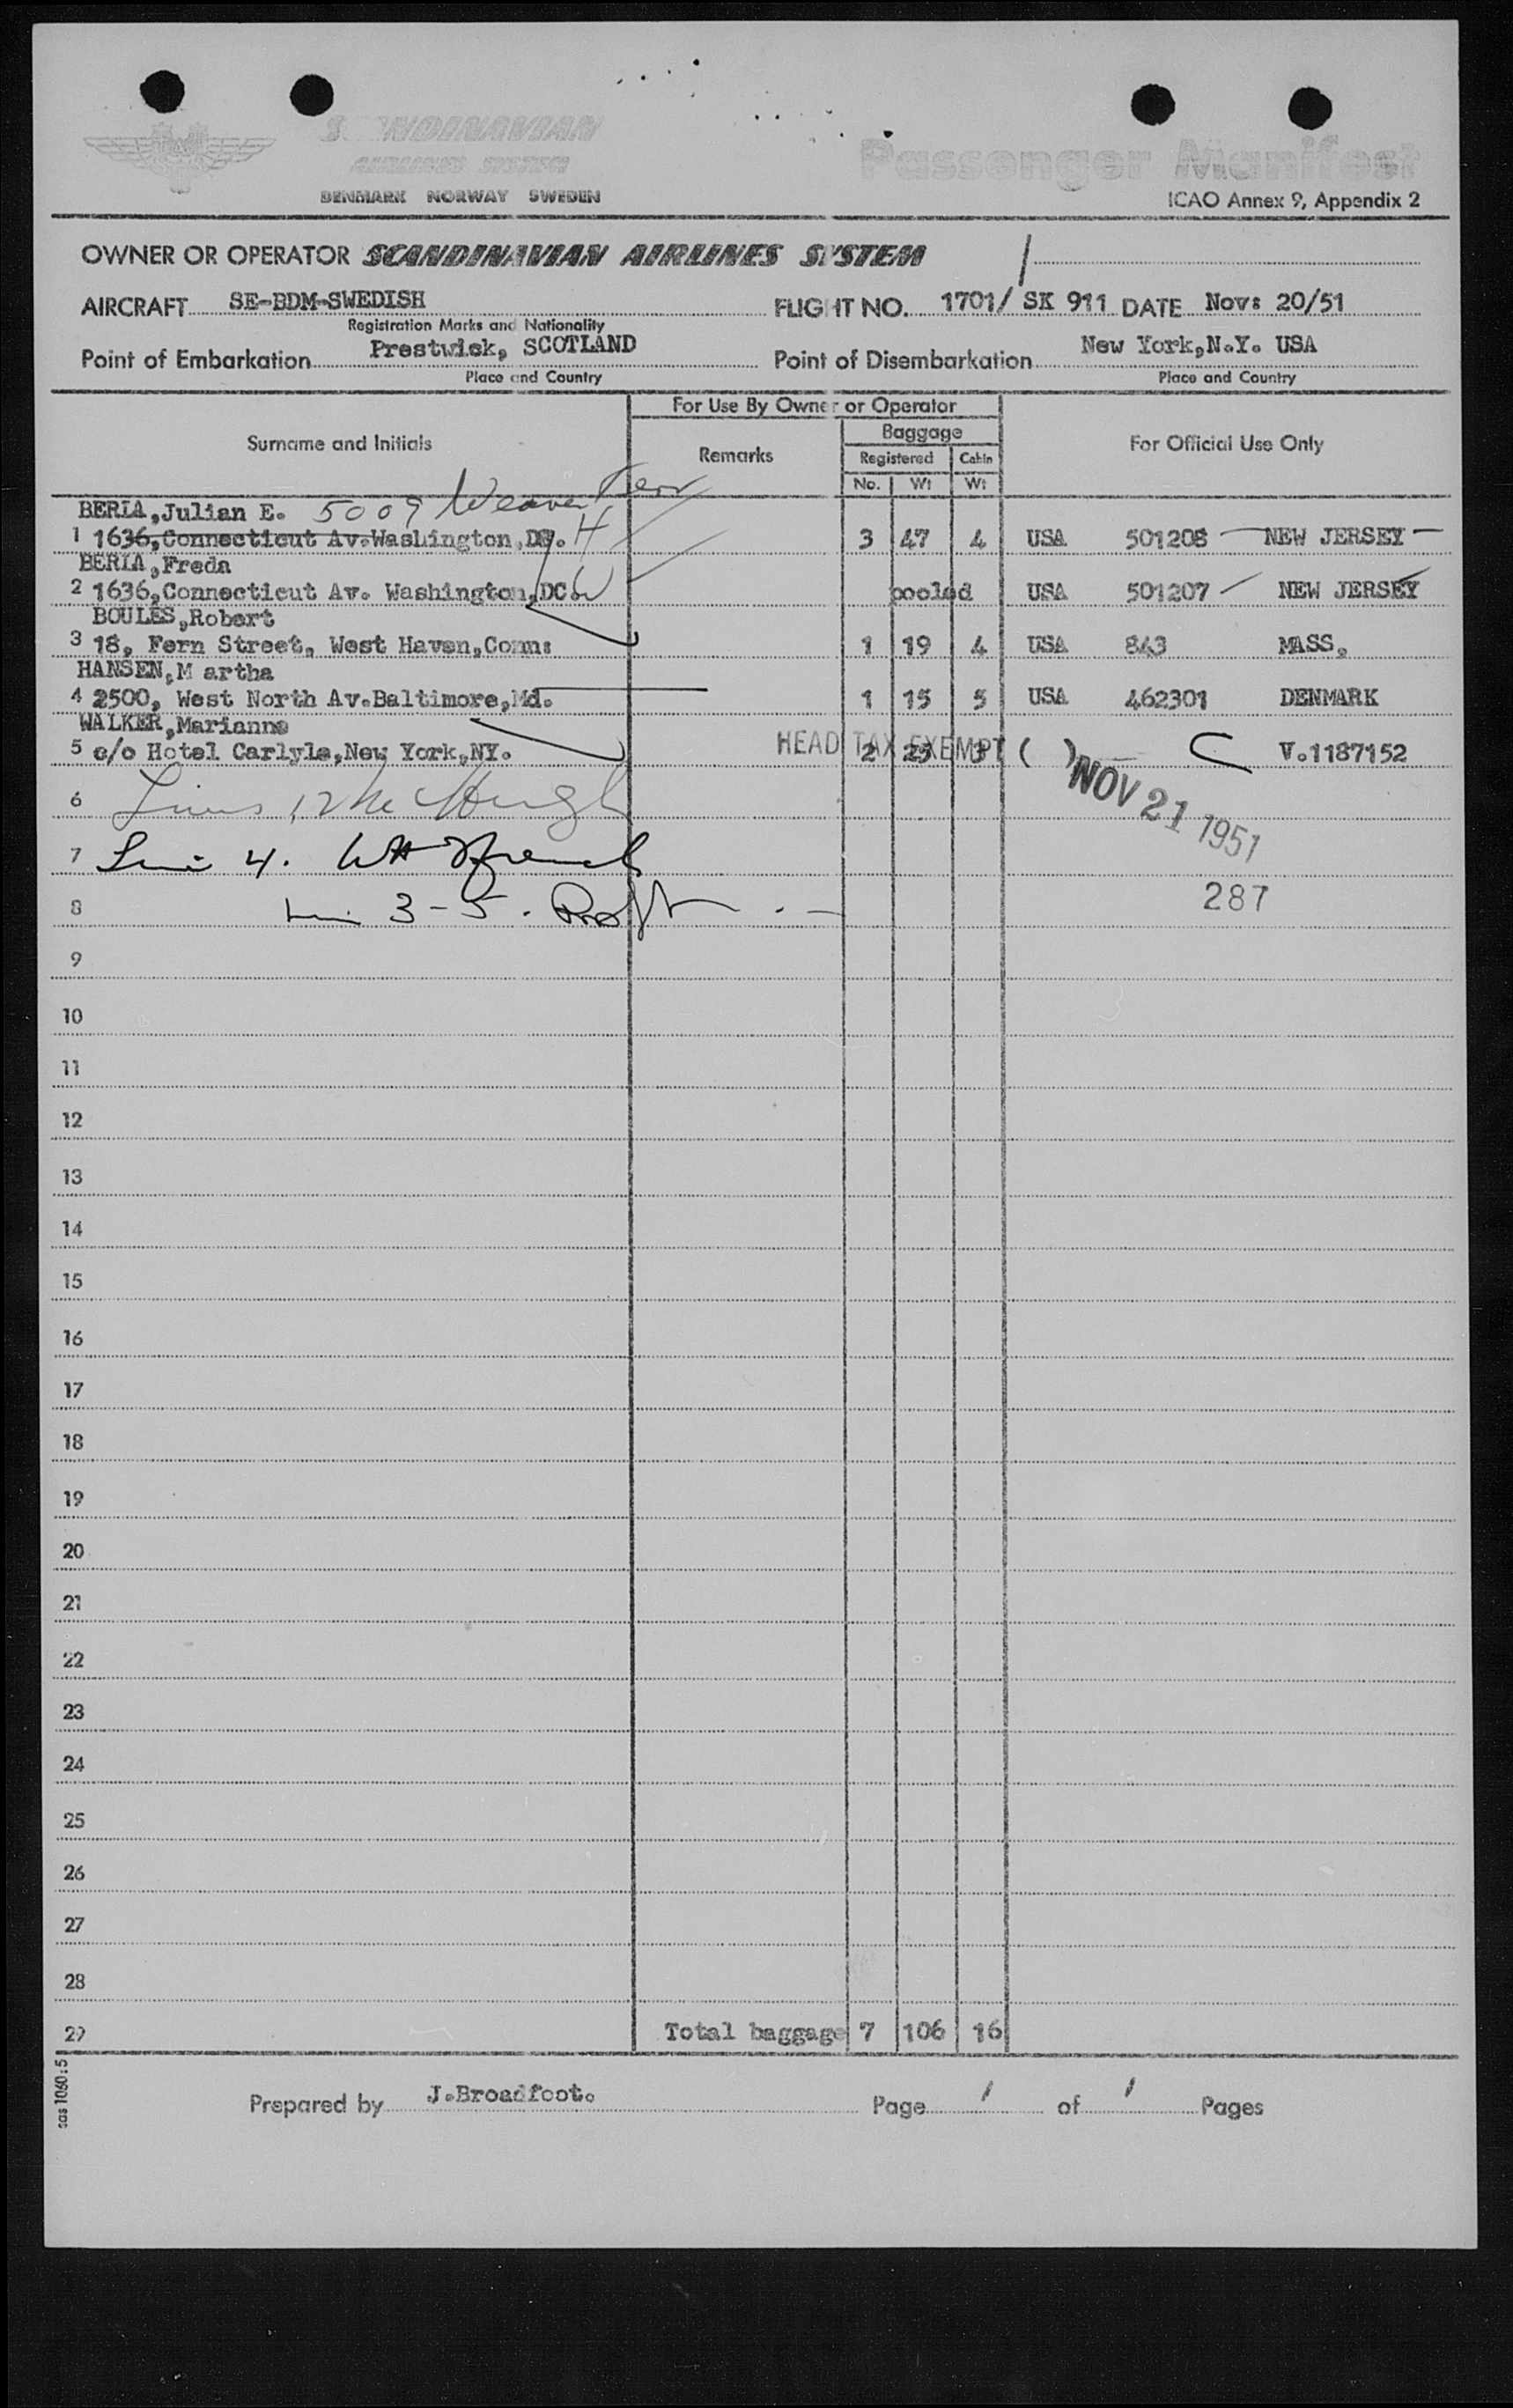 SCANDINAVIAN
AIRLINES SYSTEM
DENMARK NORWAY SWEDEN
Passenger Manifest
ICAO Annex 9, Appendix 2
OWNER OR OPERATOR SCANDINAVIAN AIRLINES SYSTEM
AIRCRAFT SE-BDM-SWEDISH FLIGHT NO. 1701/ SK 911 DATE Nov: 20/51
Registration Marks and Nationality
Point of Embarkation Prestwick, SCOTLAND Point of Disembarkation New York,N.Y. USA
Place and Country Place and Country
Surname and Initials For Use By Owner or Operator For Official Use Only
Remarks Baggage
Registered Cabin
No. Wt Wt
BERLA,Julian E. 5009 Weaver Terr
1 1636,Connecticut Av.Washington,DC. H 3 47 4 USA 501208 NEW JERSEY
BERLA,Freda
2 1636,Connecticut Av. Washington,DC. W pooled USA 501207 NEW JERSEY
BOULES,Robert
3 18, Fern Street, West Haven,Conn: 1 19 4 USA 843 MASS.
HANSEN,M artha
4 2500, West North Av.Baltimore,Md. 1 15 5 USA 462301 DENMARK
WALKER,Marianne
5 c/o Hotel Carlyle,New York,NY. 2 25 3 V.1187152
HEAD TAX EXEMPT ( )
NOV 21 1951
6 Lines 1,2
7 Line 4.
287
8 3-5.
9
10
11
12
13
14
15
16
17
18
19
20
21
22
23
24
25
26
27
28
29 Total baggage 7 106 16
sas 1060:5
Prepared by J.Broadfoot. Page 1 of 1 Pages